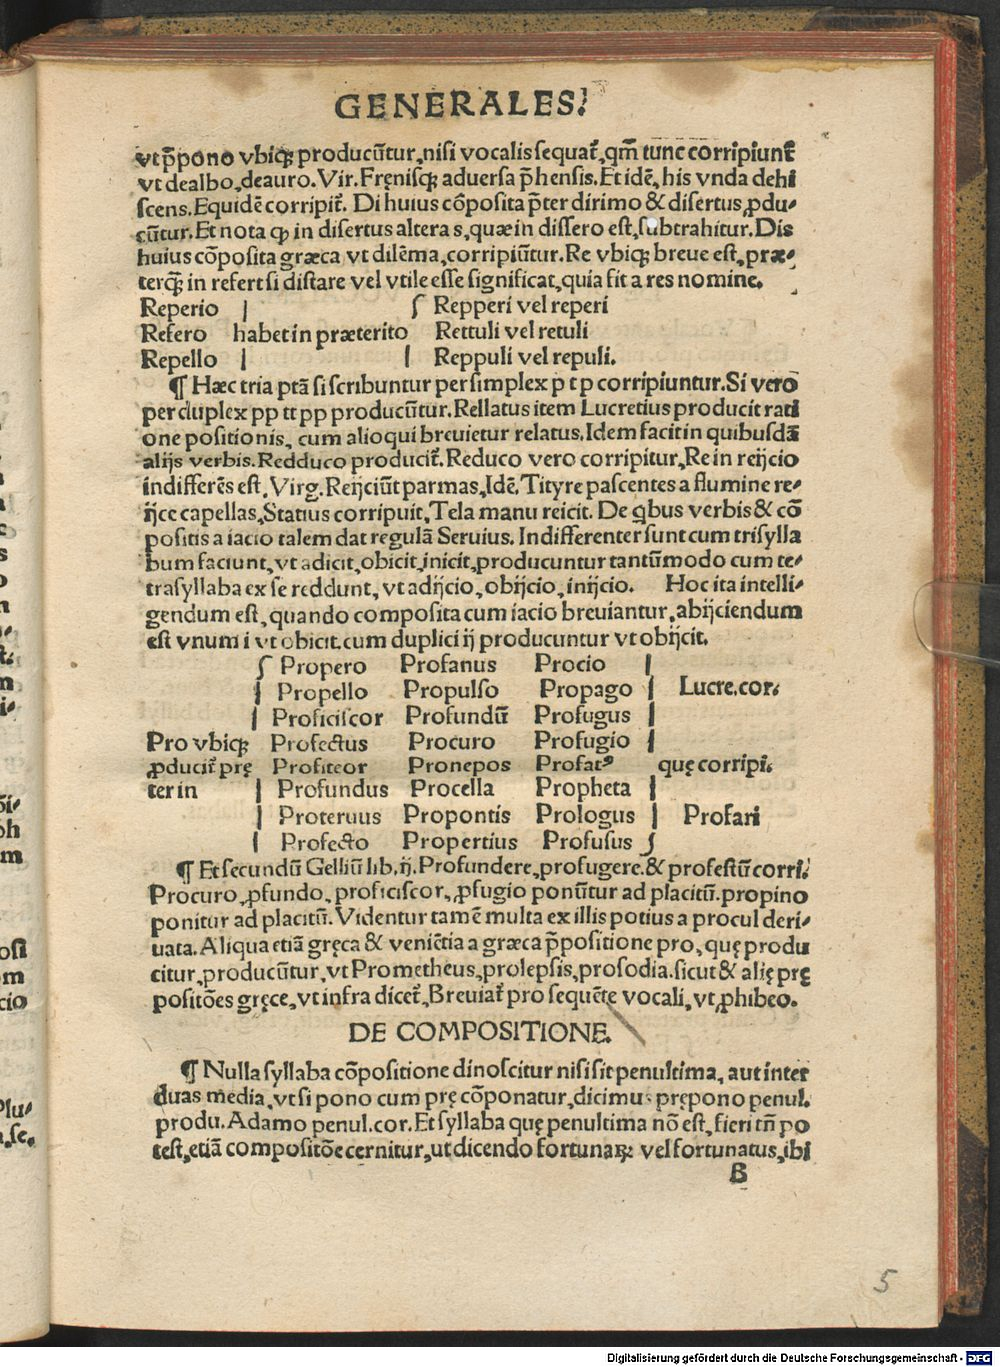 GENERALES.
vt p̄pono vbiq; producūtur, nisi vocalis sequat̄, qm̄ tunc corripiunt̄
vt dealbo, deauro. Vir. Fręnisq; aduersa p̄hensis. Et idē, his vnda dehi
scens. Equidē corripit̄. Di huius cōposita p̄ter dirimo & disertus, ꝓdu-
cūtur. Et nota ꝙ in disertus altera s, quæ in dissero est, subtrahitur. Dis
huius cōposita græca vt dilēma, corripiūtur. Re vbiq; breue est, præ-
terq̄; in refert si distare vel vtile esse significat, quia fit a res nomine.
Reperio | ʃ Repperi vel reperi
Refero habet in præterito Rettuli vel retuli
Repello | | Reppuli vel repuli.
¶ Hæc tria ptā si scribuntur per simplex p t p corripiuntur. Si vero
per duplex pp tt pp producūtur. Rellatus item Lucretius producit rati
one positionis, cum alioqui breuietur relatus. Idem facit in quibusdā
alijs verbis. Redduco producit̄. Reduco vero corripitur, Re in reijcio
indifferēs est, Virg. Reijciūt parmas, Idē. Tityre pascentes a flumine re-
ijce capellas, Statius corripuit, Tela manu reicit. De qbus verbis & cō
positis a iacio talem dat regulā Seruius. Indifferenter sunt cum trisylla
bum faciunt, vt adicit, obicit, inicit, producuntur tantūmodo cum te-
trasyllaba ex se reddunt, vt adijcio, obijcio, inijcio. Hoc ita intelli-
gendum est, quando composita cum iacio breuiantur, abijciendum
est vnum i vt obicit. cum duplici ij producuntur vt obijcit.
ʃ Propero Profanus Procio |
| Propello Propulso Propago | Lucre. cor.
| Proficiscor Profundū Profugus |
Pro vbiq; Profectus Procuro Profugio |
ꝓducit̄ pre̜ Profiteor Pronepos Profatꝰ quę corripi.
ter in | Profundus Procella Propheta |
| Proteruus Propontis Prologus | Profari
| Profecto Propertius Profusus ʃ
¶ Et secundū Gelliū lib. ij. Profundere, profugere. & profestū corri.
Procuro, ꝓfundo, proficiscor, ꝓfugio ponūtur ad placitū. propino
ponitur ad placitū. Videntur tamē multa ex illis potius a procul deri-
uata. Aliqua etiā gręca & veniētia a græca p̄positione pro, quę produ
citur, producūtur, vt Prometheus, prolepsis, prosodia. sicut & alię prę
positōes gręce, vt infra dicet̄, Breuiat̄ pro sequēte vocali, vt, ꝓhibeo.
DE COMPOSITIONE.
¶ Nulla syllaba cōpositione dinoscitur nisi sit penultima, aut inter
duas media, vt si pono cum prę cōponatur, dicimus prępono penul.
produ. Adamo penul. cor. Et syllaba quę penultima nō est, fieri tn̄ po
test, etiā compositōe cernitur, ut dicendo fortunaꝝ vel fortunatus, ibi
B
5
Digitalisierung gefördert durch die Deutsche Forschungsgemeinschaft - DFG